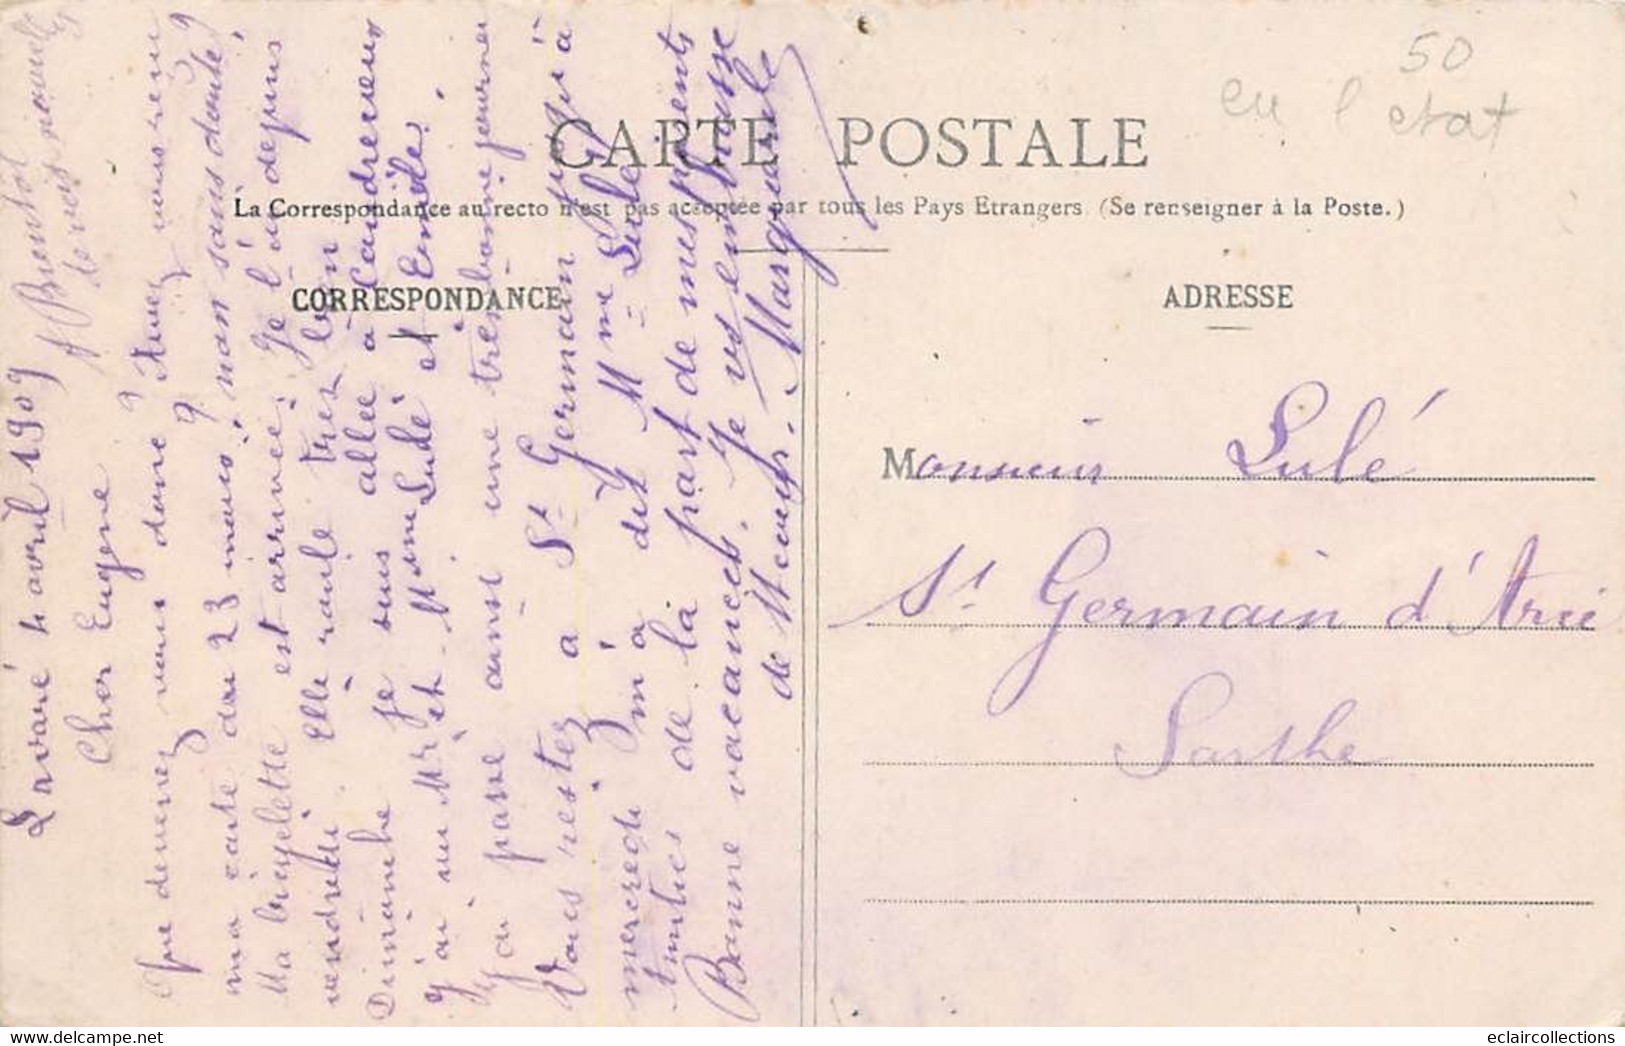 50
en l'etat
CARTE POSTALE
La Correspondance au recto n'est pas acceptée par tous les Pays Etrangers (Se renseigner à la Poste.)
CORRESPONDANCE
ADRESSE
Lavaré 4 avril 1909
A Bientôt
Cher Eugène
Que devenez vous donc ? Avez vous reçu
ma carte du 23 mars ? non sans doute ?
Ma biçyclette est arrivée, Je l'ai depuis
vendredi Elle roule très bien
Dimanche je suis allée à Coudrecieux
J'ai vu Mr et Mme Lulé et Emile.
J'ai passé ainsi une très bonne journée
Vous restez à St Germain jusqu'à
mercredi m'a dit Mme Lulé
de la part de mes parents
Bonne vacances. Je vs embrasse
de tt cœur. Marguerite
Monsieur Lulé
St Germain d'Arcé
Sarthe
eclaircollections